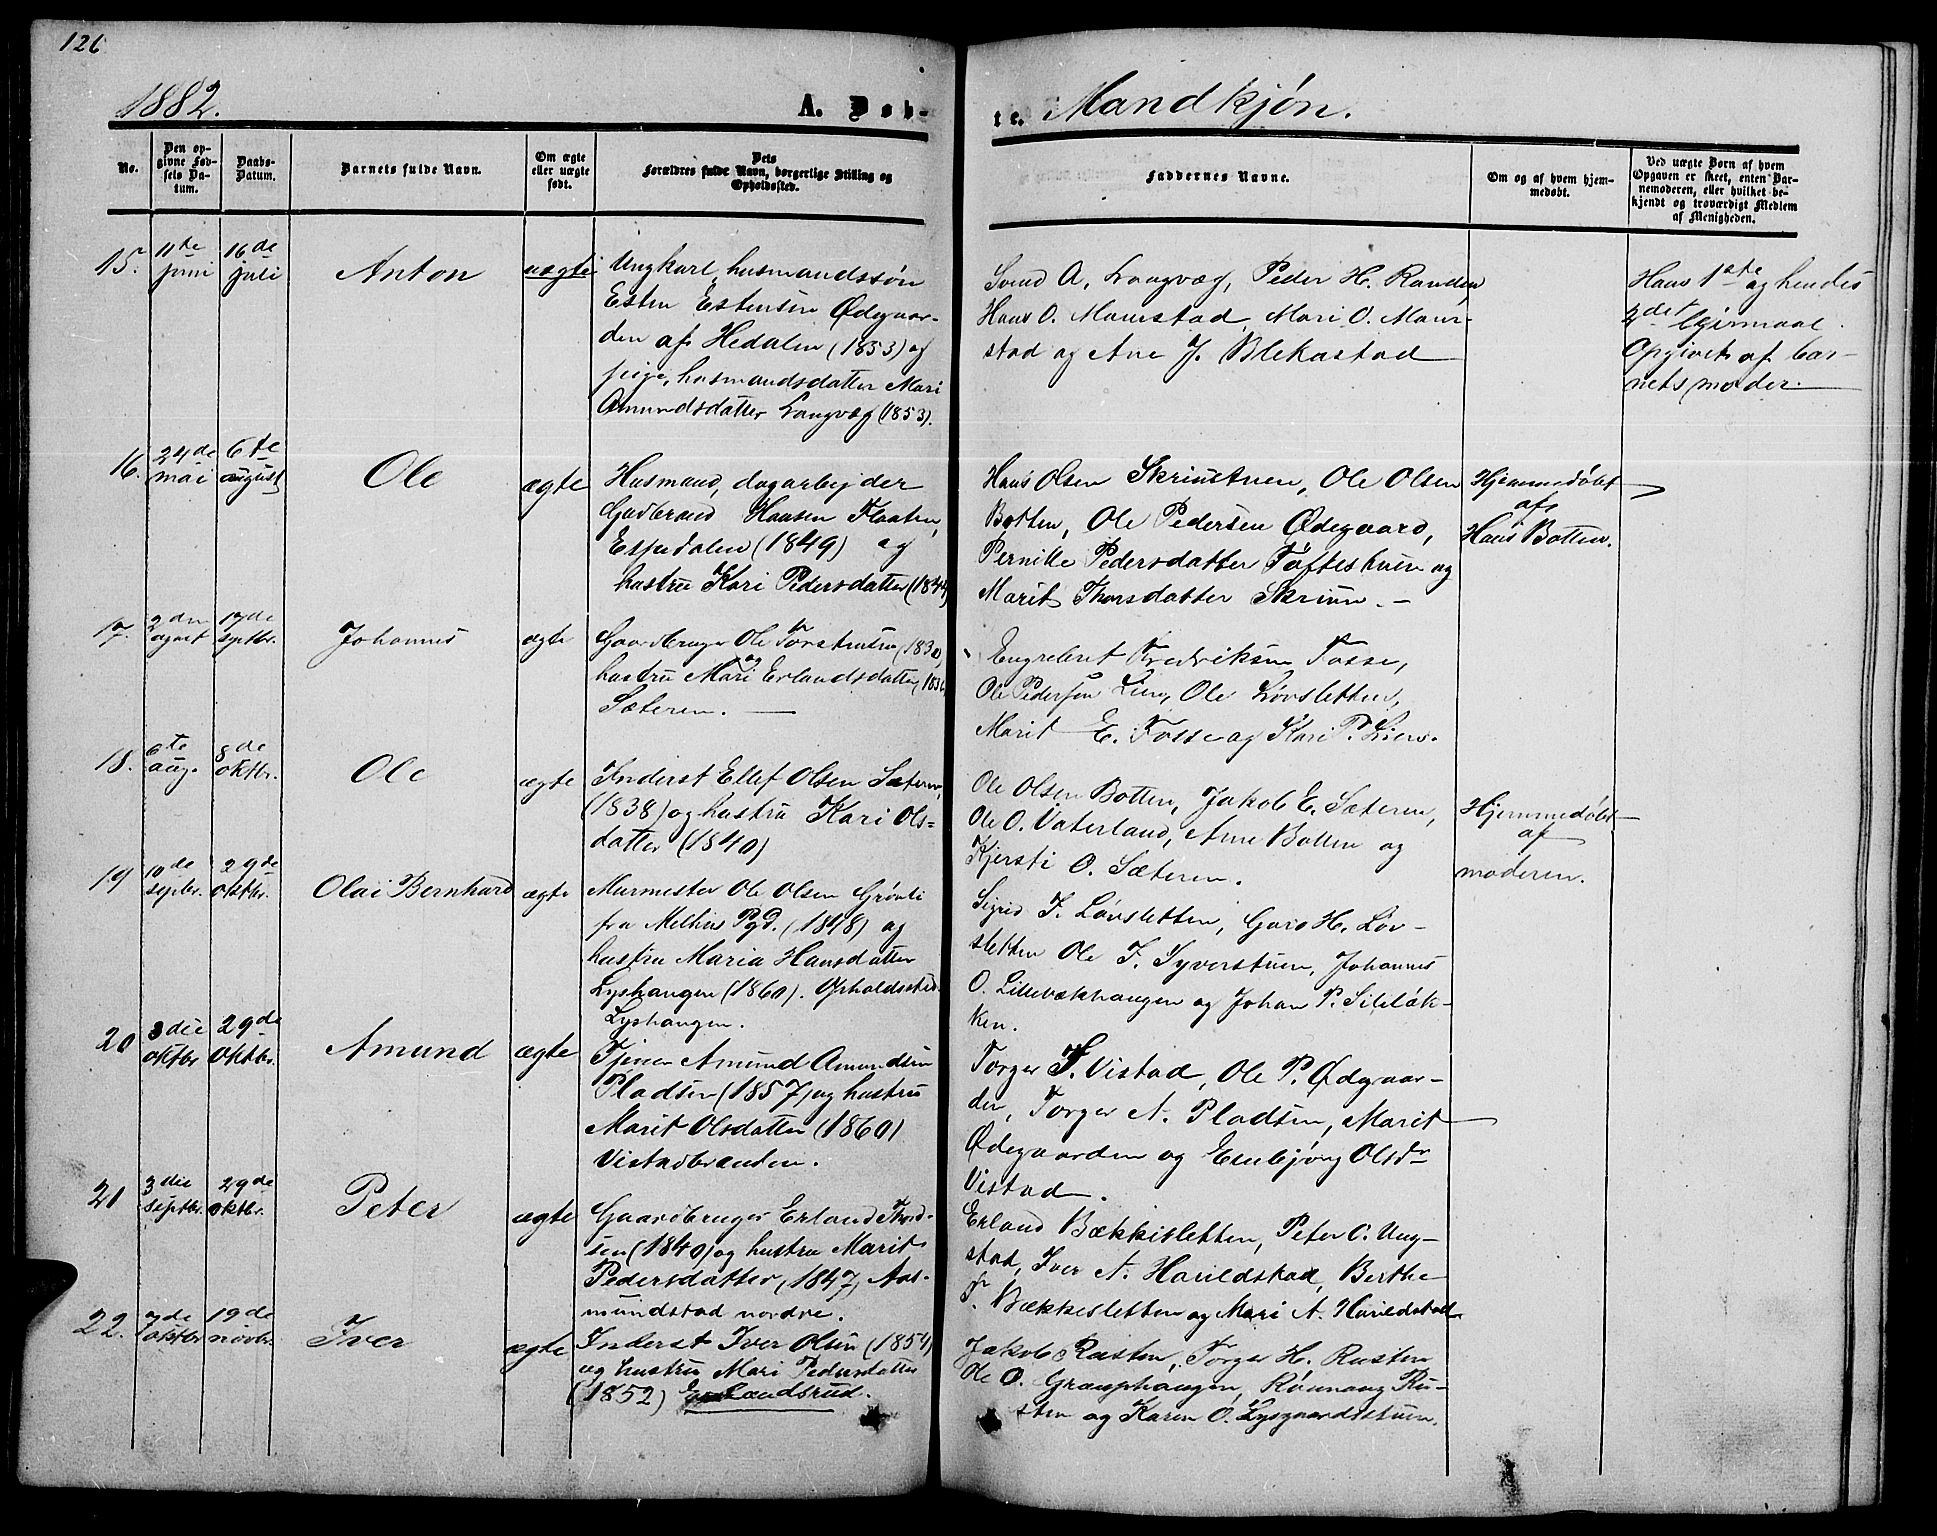 126
1882.
A. Døb-
te. Mandkjøn.
No.
Den op-
givne Fød-
sels Da-
tum.
Daabs-
Datum.
Barnets fulde Navn.
Om ægte
eller uægte
født.
Dets
Forældres fulde Navn, borgerlige Stilling og
Opholdssted.
Faddernes Navne.
Om og af hvem hjem-
medøbt.
Ved uægte Børn af hvem
Opgaven er skeet, enten Bar-
nemoderen, eller hvilket be-
kjendt og troværdigt Medlem
af Menigheden.
15. 11te juni 16de juli Anton uægte
Ungkarl, husmandssøn
Esten Estensen Ødegaar-
den af Hedalen (1853) og
pige, husmandsdatter Mari
Amundsdatter Langvæg (1853).
Svend A. Langvæg, Peder H. Randen,
Hans O. Maurstad, Mari O. Maur-
stad og Ane J. Blekastad
Hans 1ste og hendes
2det leiermaal.
Opgivet af bar-
nets moder.
16. 24de mai 6te august Ole ægte
Husmand, dagarbejder
Gudbrand Hansen Flaaten,
Espedalen (1849) og
hustru Kari Pedersdatter (1844)
Hans Olsen Skriustuen, Ole Olsen
Botten, Ole Pedersen Ødegaard,
Pernille Pedersdatter Tofteshuen og
Marit Thorsdatter Skriuen. –
Hjemmedøbt
af
Hans Botten.
17. 2den august 17de septbr. Johannes ægte
Gaardbruger Ole Torstensen (1830)
og
hustru Mari Erlandsdatter,
Sæteren.
Engebret Fredriksen Fosse,
Ole Pedersen Lien, Ole Løvsletten,
Marit E. Fosse og Kari P. Lien.
18. 6te aug. 8de oktbr. Ole ægte
Inderst Ellef Olsen Sæteren,
(1838) og hustru Kari Ols-
datter (1840)
Ole Olsen Botten, Jakob E. Sæteren,
Ole O. Vaterland, Anne Botten og
Kjersti O. Sæteren.
Hjemmedøbt
af
moderen.
19 10de septbr. 29de oktbr. Olai Bernhard ægte
Murmester Ole Olsen Grønli
fra Melhus Pgd. (1848) og
hustru Maria Hansdatter
Lyshaugen (1860). Opholdssted
Lyshaugen.
Sigrid F. Løvsletten, Guro H. Løv-
sletten Ole F. Syverstuen, Johannes
O. Lillebækhaugen og Johan P. Sileløk-
ken.
20 3die oktbr 29de oktbr. Amund ægte
Tjener Amund Amundsen
Pladsen (1857) og hustru
Marit Olsdatter (1860)
Vistadbrænden.
Torger S. Vistad, Ole P. Ødegaar-
den, Torger A. Pladsen, Marit
Ødegaarden og Embjørg Olsdr
Vistad.
21 3die septbr. 29de oktbr. Peter ægte
Gaardbruger Erland Thord-
sen (1840) og hustru Marit
Pedersdatter, (1847) Aas-
mundstad nordre.
Erland Bækkesletten, Peter O. Ung-
stad, Iver A. Harildstad, Berthe
P. Bækkesletten og Mari A. Harildstad
22. 7de oktbr 19de novbr. Iver ægte
Inderst Iver Olsen (1854)
og hustru Mari Pedersdatter
(1852) Landsrud.
Jakob Rusten, Torger H. Rusten
Ole O. Grauphaugen, Rønnaug Ru-
sten og Karen O. Lysgaardsstuen.